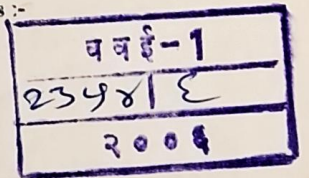 ववई-1
२३५४| ६
२००६